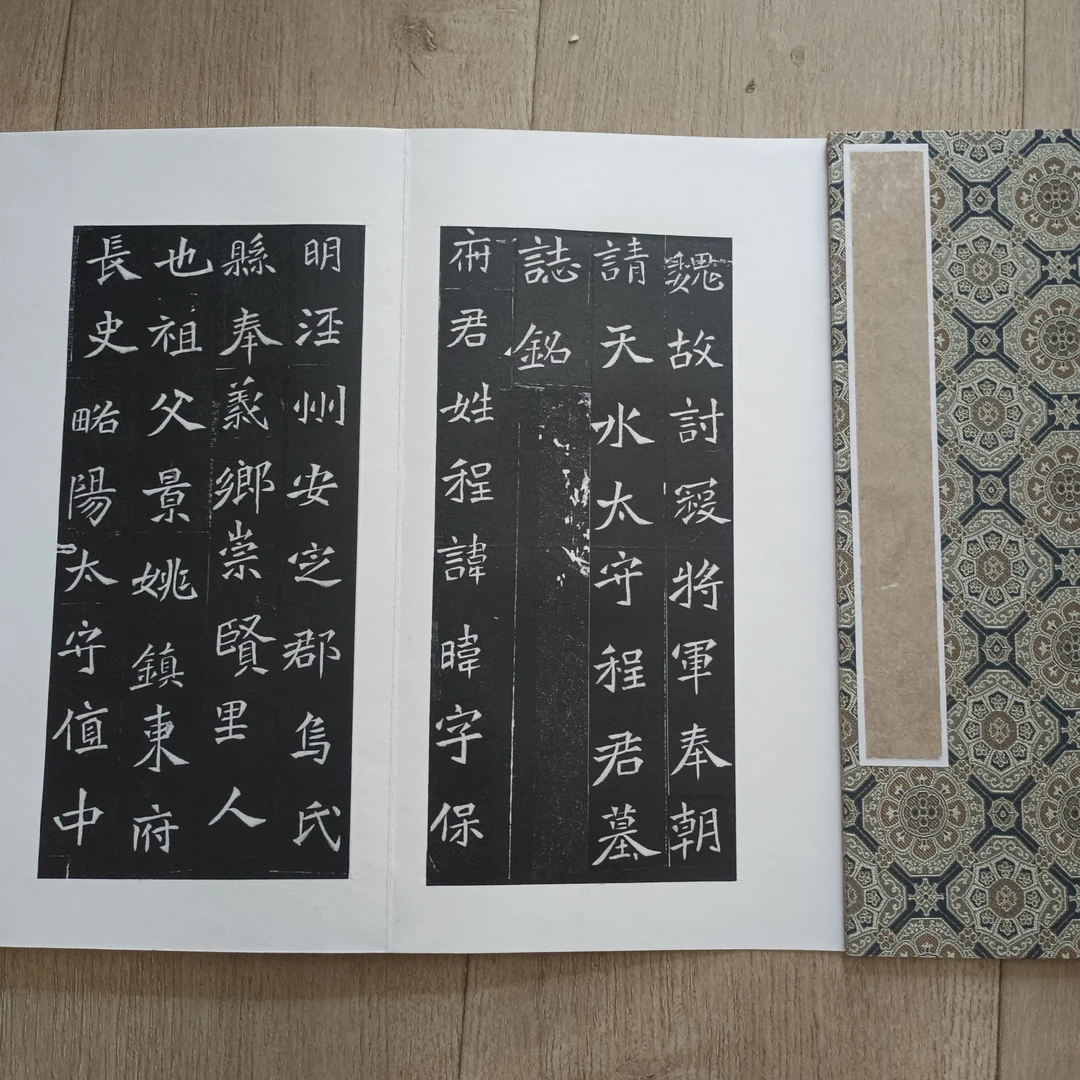 魏故討寇將軍奉朝
請天水太守程君墓
誌銘
府君姓程諱暐字保
明涇州安定郡烏氏
縣奉義鄉崇賢里人
也祖父景姚鎮東府
長史略陽太守值中